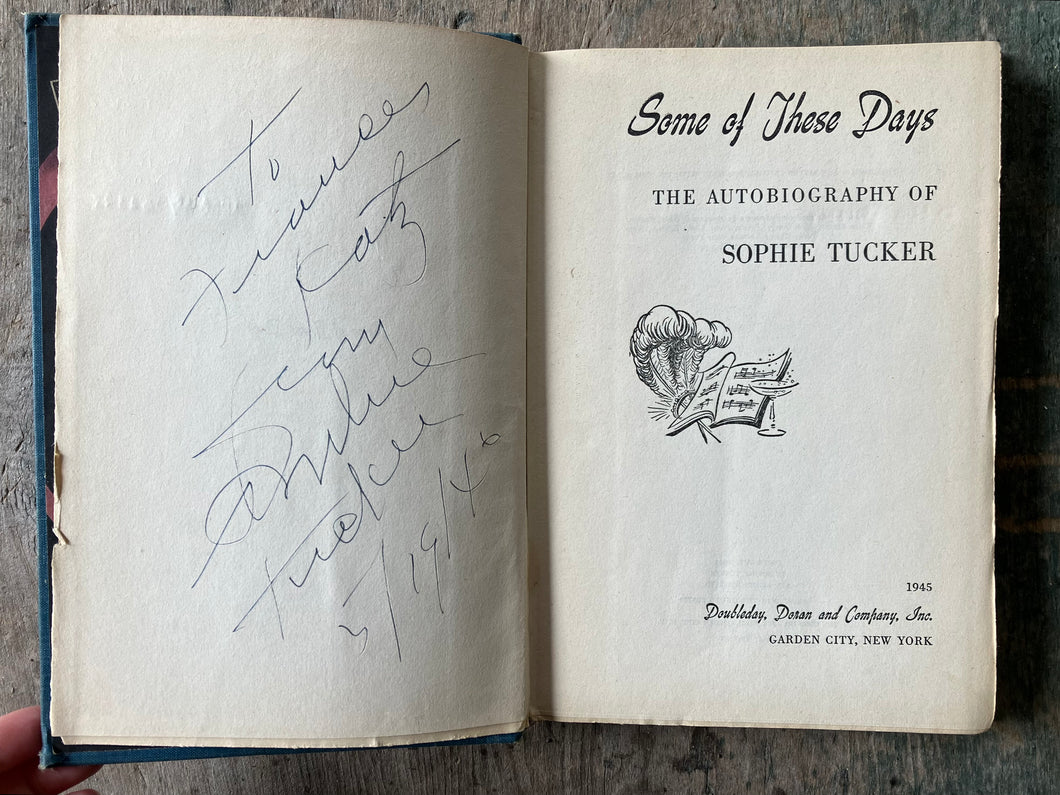 To
Frances
Katz
From
Sophie
Tucker
3/19/46
Some of These Days
THE AUTOBIOGRAPHY OF
SOPHIE TUCKER
1945
Doubleday, Doran and Company, Inc.
GARDEN CITY, NEW YORK